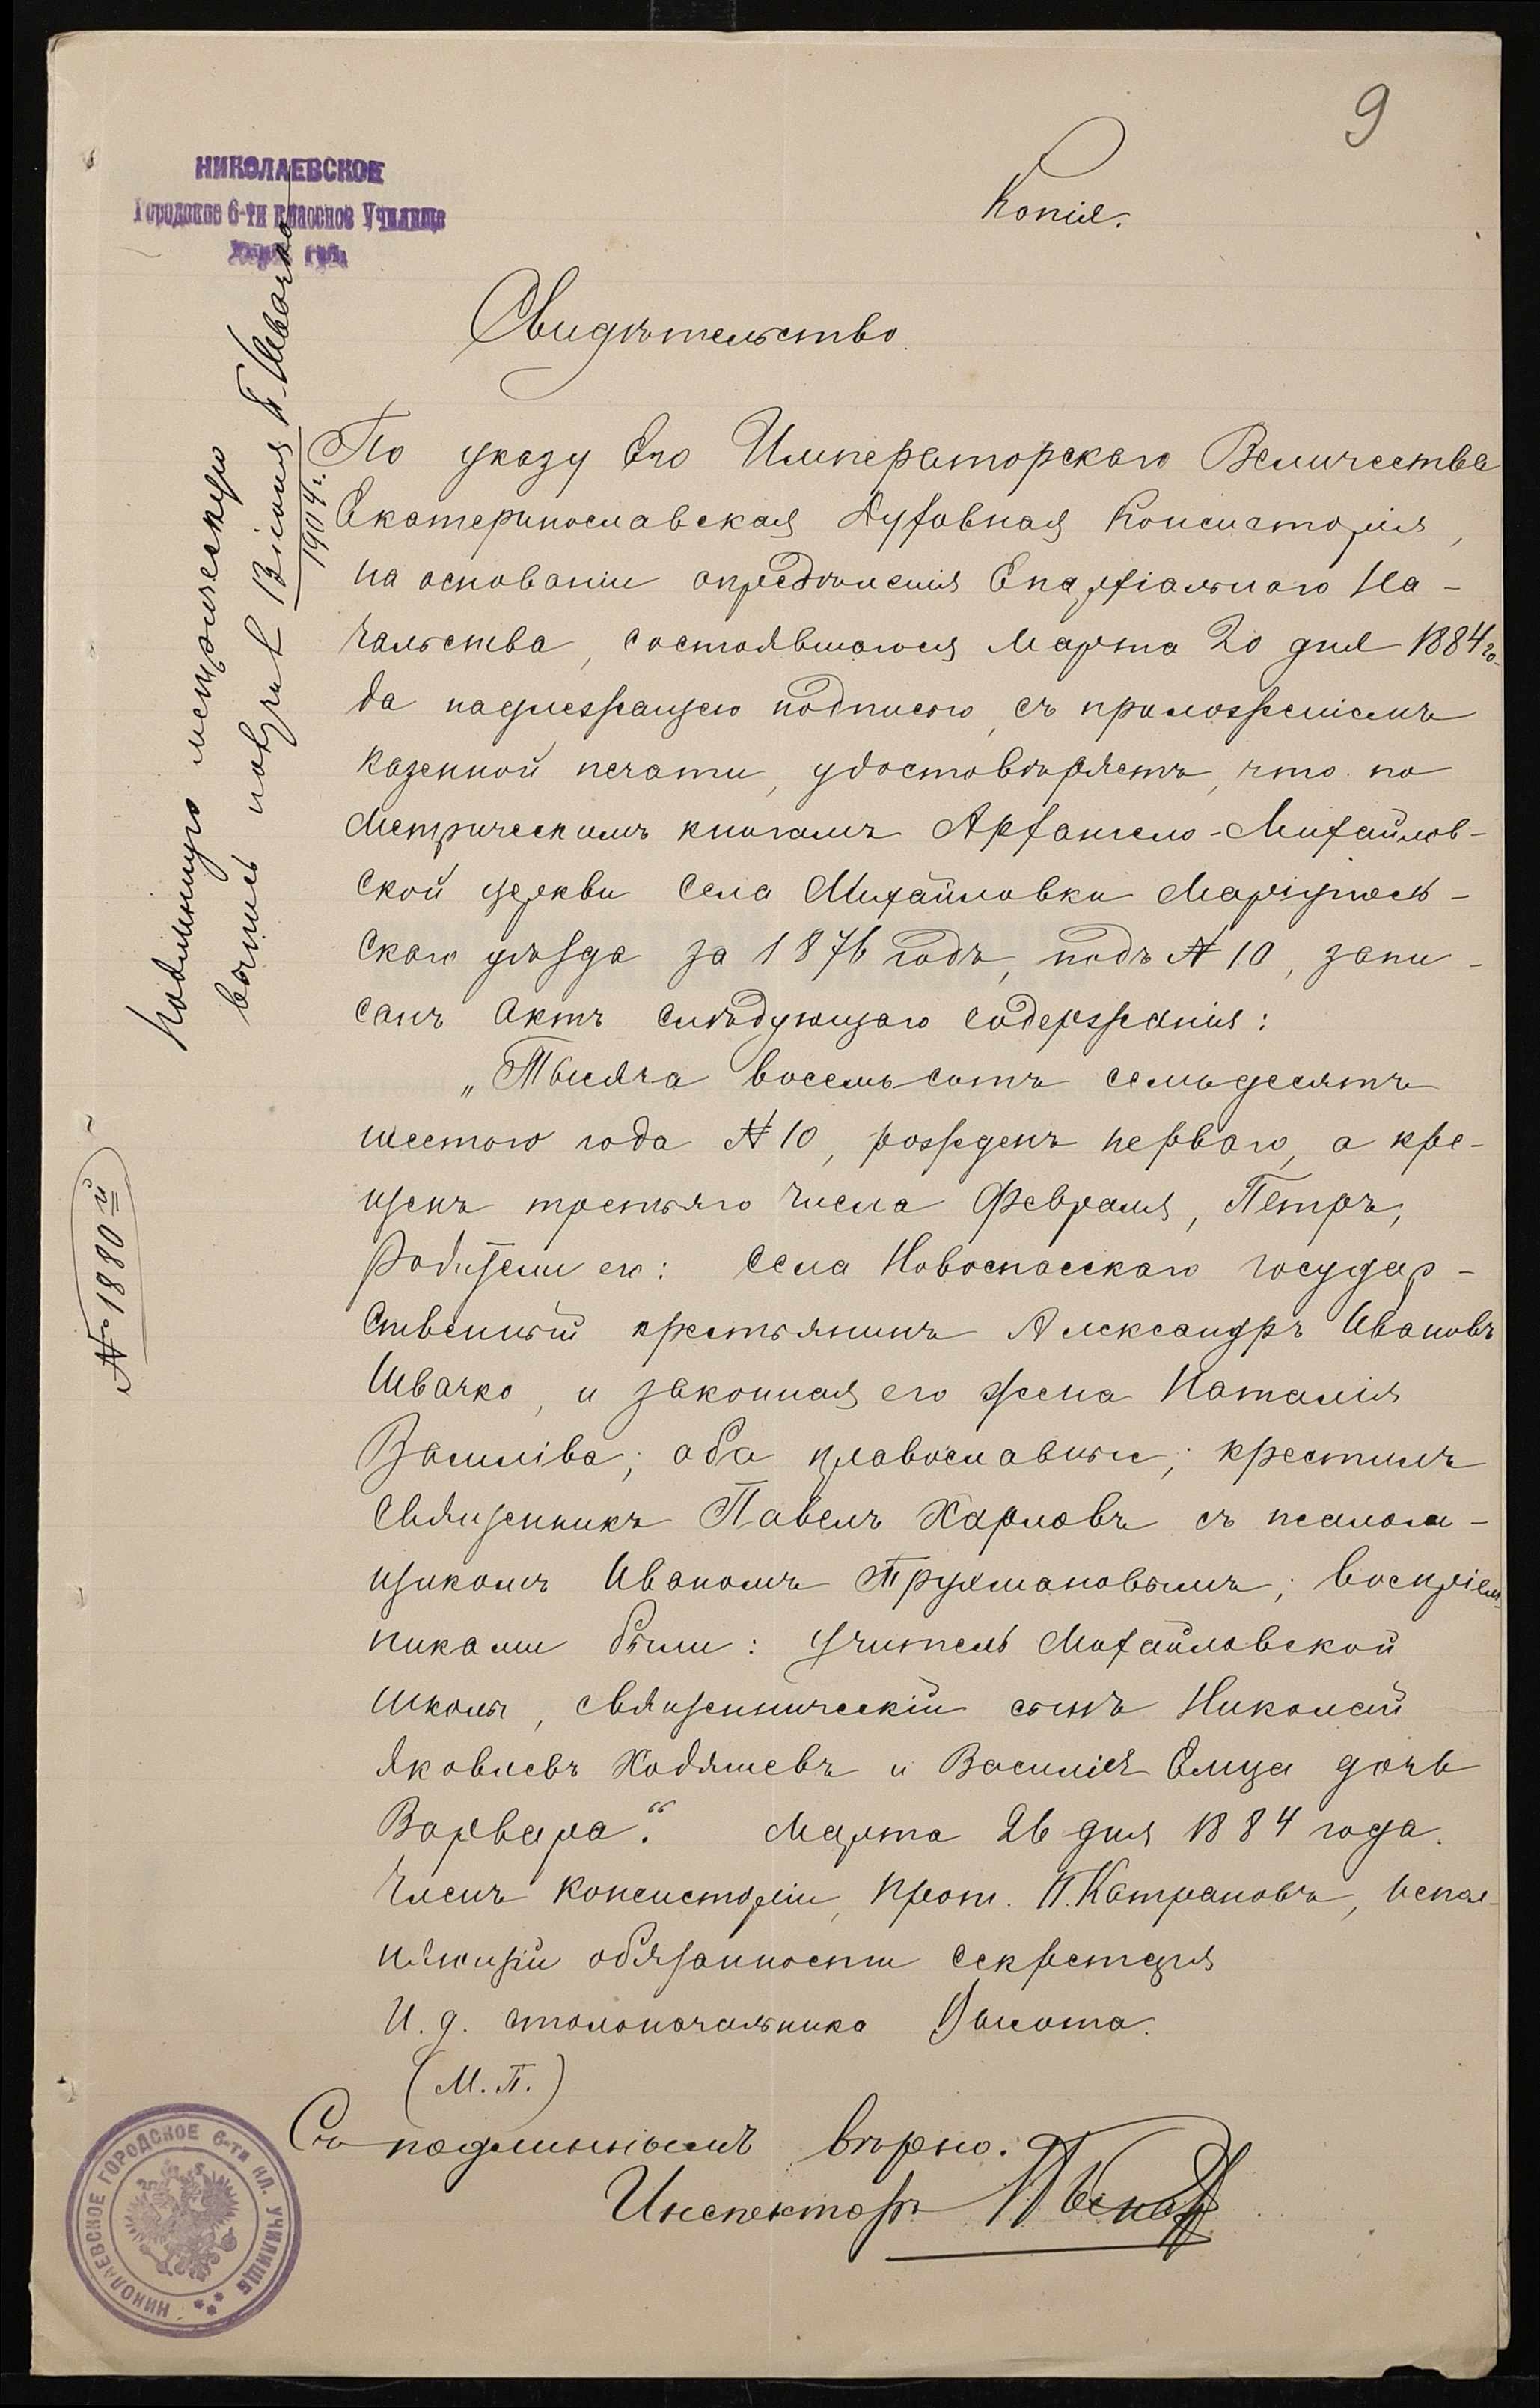 9
НИКОЛАЕВСКОЕ
Городское 6-ти классное Училище
Херс. губ.
Копія.
Свидѣтельство.
По указу Его Императорскаго Величества
Екатеринославская Духовная Консисторія,
на основаніи опредѣленія Епархіальнаго На-
чальства, состоявшагося Марта 20 дня 1884 го-
да надлежащею подписью, съ приложеніемъ
казенной печати, удостовѣряетъ, что по
метрическимъ книгамъ Архангело-Михайлов-
ской церкви села Михайловки Маріуполь-
скаго уѣзда за 1876 годъ, подъ № 10, запи-
санъ актъ слѣдующаго содержанія:
„Тысяча восемьсотъ семьдесятъ
шестого года № 10, рожденъ перваго, а кре-
щенъ третьяго числа Февраля, Петръ,
Родители его: села Новоспасскаго государ-
ственный крестьянинъ Александръ Ивановъ
Швачко, и законная его жена Наталія
Василіва; оба православные; крестилъ
священникъ Павелъ Харловъ съ псалом-
щикомъ Иваномъ Трухмановымъ; воспріем-
никами были: учитель Михайловской
школы, священническій сынъ Николай
Яковлевъ Ходяшевъ и Василія Елца дочь
Варвара“. Марта 26 дня 1884 года.
Членъ консисторіи, прот. П. Катрановъ, испол-
няющій обязанности секретаря
И. д. столоначальника Высота.
(М. П.)
Съ подлиннымъ вѣрно:
Инспекторъ
Подлинную метрическую
выпись получилъ 13 іюня П. Швачко
1904 г.
№ 1880 й
НИКОЛАЕВСКОЕ ГОРОДСКОЕ 6-ТИ КЛ. УЧИЛИЩЕ